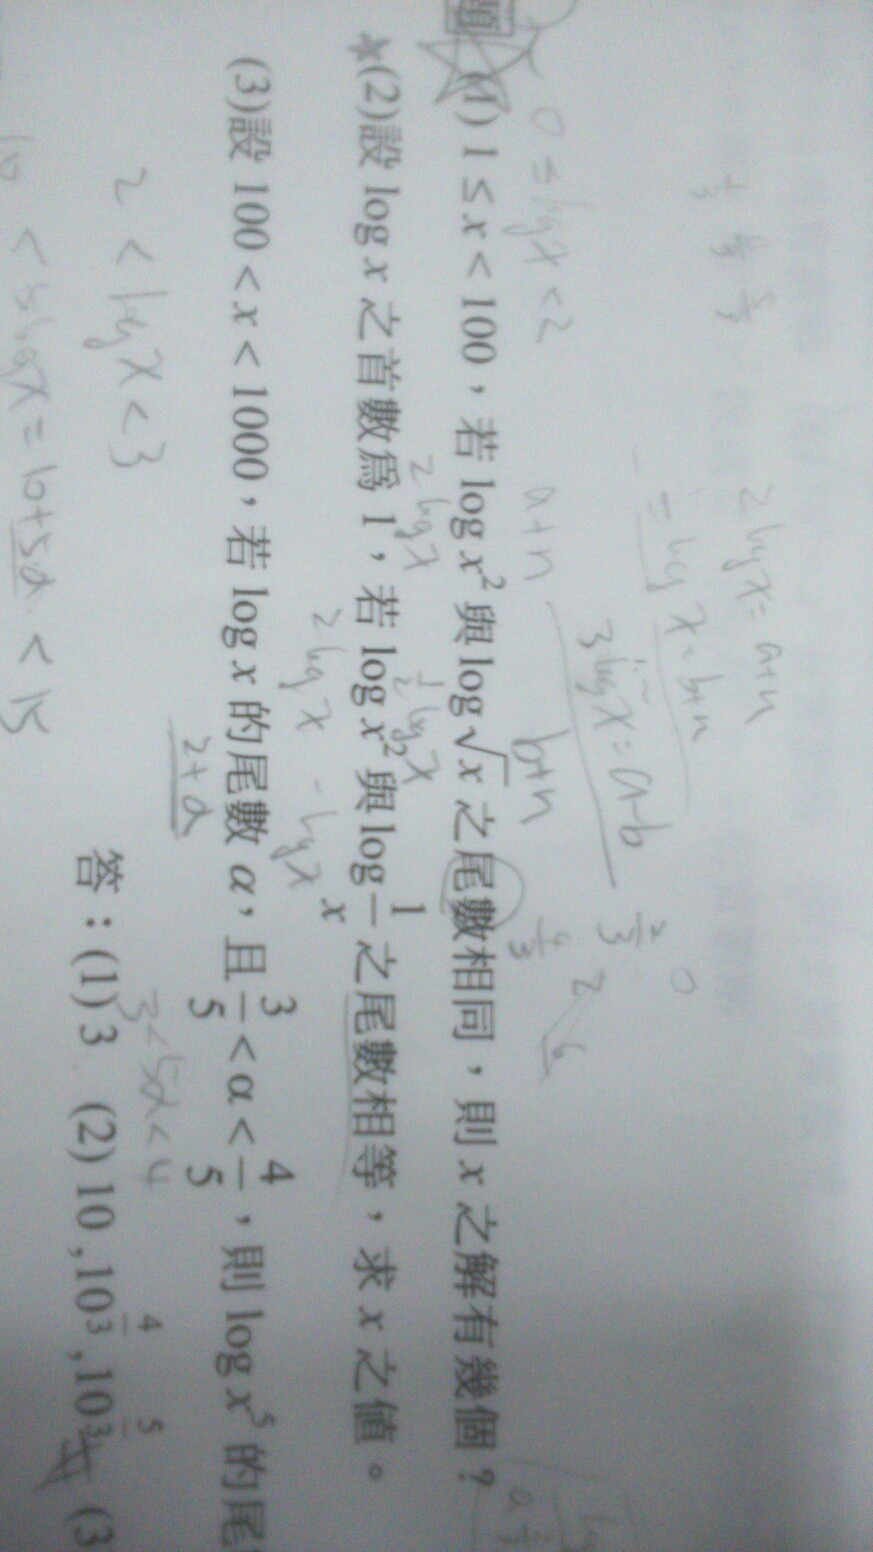 題
0 = log x < 2
a+n
b+n
2 log x = a+n
3 log x = a-b
(1) 1 ≤ x < 100，若 log x² 與 log √x 之尾數相同，則 x 之解有幾個？
2 log x
½ log x
(2)設 log x 之首數為 1，若 log x² 與 log 1/x 之尾數相等，求 x 之值。
2 log x - log x
(3)設 100 < x < 1000，若 log x 的尾數 α，且 3/5 < α < 4/5，則 log x⁵ 的尾
2+α
2 < log x < 3
3 < 5α < 4
答：(1) 3 (2) 10 ,10^(4/3) ,10^(5/3) (3
10 < 5 log x = 10+5α < 15